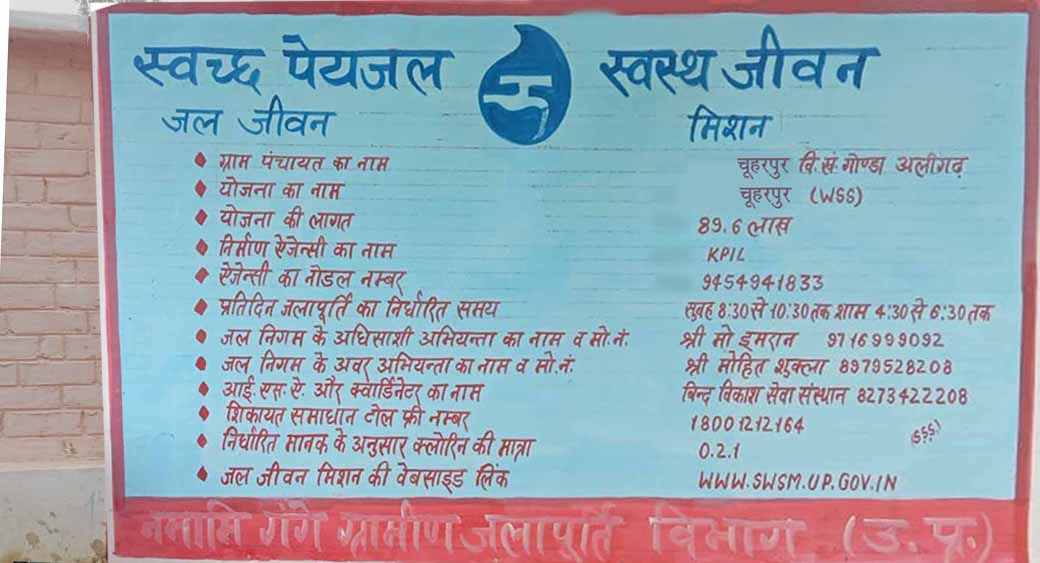 स्वच्छ पेयजल स्वस्थ जीवन
जल जीवन मिशन
ग्राम पंचायत का नाम चूहरपुर वि.खं.गोण्डा अलीगढ़
योजना का नाम चूहरपुर (WSS)
योजना की लागत 89.6 लाख
निर्माण ऐजेन्सी का नाम KPIL
ऐजेन्सी का नोडल नम्बर 9454941833
प्रतिदिन जलापूर्ति का निर्धारित समय सुवह 8:30 से 10:30 तक शाम 4:30 से 6:30 तक
जल निगम के अधिसाशी अभियन्ता का नाम व मो.नं: श्री मो इमरान 9716999092
जल निगम के अवर अभियन्ता का नाम व मो.नं: श्री मोहित शुक्ला 8979528208
आई.एस.ऐ. और क्वार्डिनेटर का नाम बिन्द विकाश सेवा संस्थान 8273422208
शिकायत समाधान टोल फ्री नम्बर 18001212164
निर्धारित मानक के अनुसार क्लोरिन की मात्रा 0.2.1
जल जीवन मिशन की वेबसाइड लिंक WWW.SWSM.UP.GOV.IN
नमामि गंगे ग्रामीण जलापूर्ति विभाग (उ.प्र.)